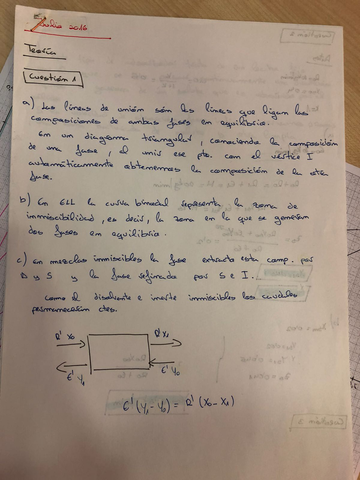 Julio 2016
Teoría
Cuestión 1
a) Las líneas de unión son las líneas que ligan las
composiciones de ambas fases en equilibrio.
En un diagrama triangular, conociendo la composición
de una fase, al unir ese pto. con el vértice I
automáticamente obtenemos la composición de la otra
fase.
b) En ELL la curva binodal representa la zona de
inmiscibilidad, es decir, la zona en la que se generan
dos fases en equilibrio.
c) En mezclas inmiscibles la fase extracta esta comp. por
D y S y la fase refinada por S e I.
Como el disolvente e inerte inmiscibles los caudales
permanecerán ctes.
R' X0 R' X1
E' Y1 E' Y0
E' (Y1 - Y0) = R' (X0 - X1)